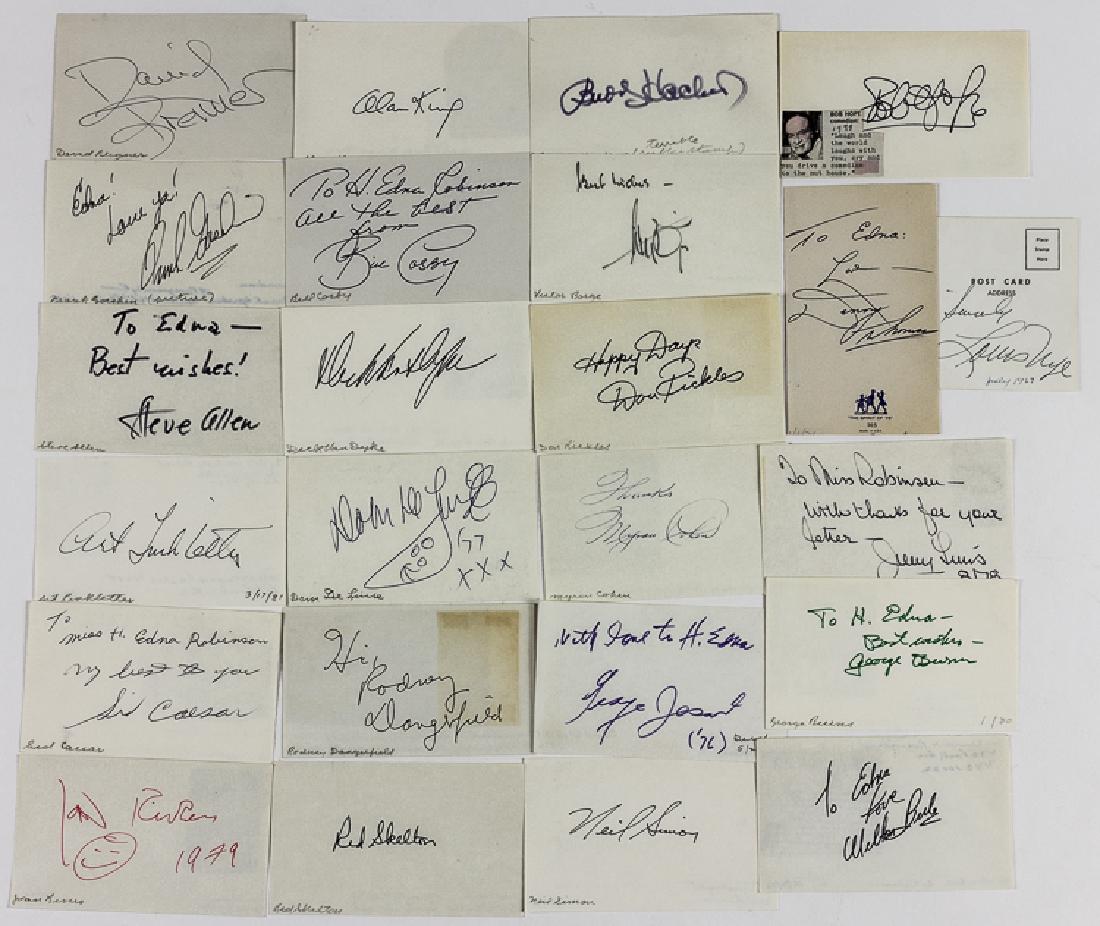 David
Brenner
David Brenner
Alan King
Buddy Hackett
terrible
Bob Hope
BOB HOPE
comedian:
"Laugh and
the world
laughs with
you, cry and
you drive a comedian
to the nut house."
Edna!
Love ya!
Frank Gorshin
Frank Gorshin (picture)
To H. Edna Robinson
All the best
from
Bill Cosby
Bill Cosby
Best wishes –
Victor Borge
To Edna:
Love –
"THE SPIRIT OF '76"
Place
Stamp
Here
POST CARD
ADDRESS
Sincerely
Louis Nye
To Edna –
Best wishes!
Steve Allen
Steve Allen
Dick Van Dyke
Dick Van Dyke
Happy Days
Don Rickles
Don Rickles
Art Linkletter
Art Linkletter
3/17/81
Dom DeLuise
'77
XXX
Dom De Luise
Thanks
Myron Cohen
Myron Cohen
To Miss Robinson –
With thanks for your
letter –
Jerry Lewis
To
Miss H. Edna Robinson
My best to you
Sid Caesar
Sid Caesar
Hi,
Rodney
Dangerfield
Rodney Dangerfield
With love to H. Edna
George Jessel
('76)
To H. Edna –
Best wishes –
George Burns
George Burns
1/80
Joan Rivers
1979
Joan Rivers
Red Skelton
Red Skelton
Neil Simon
Neil Simon
To Edna
Love
Milton Berle